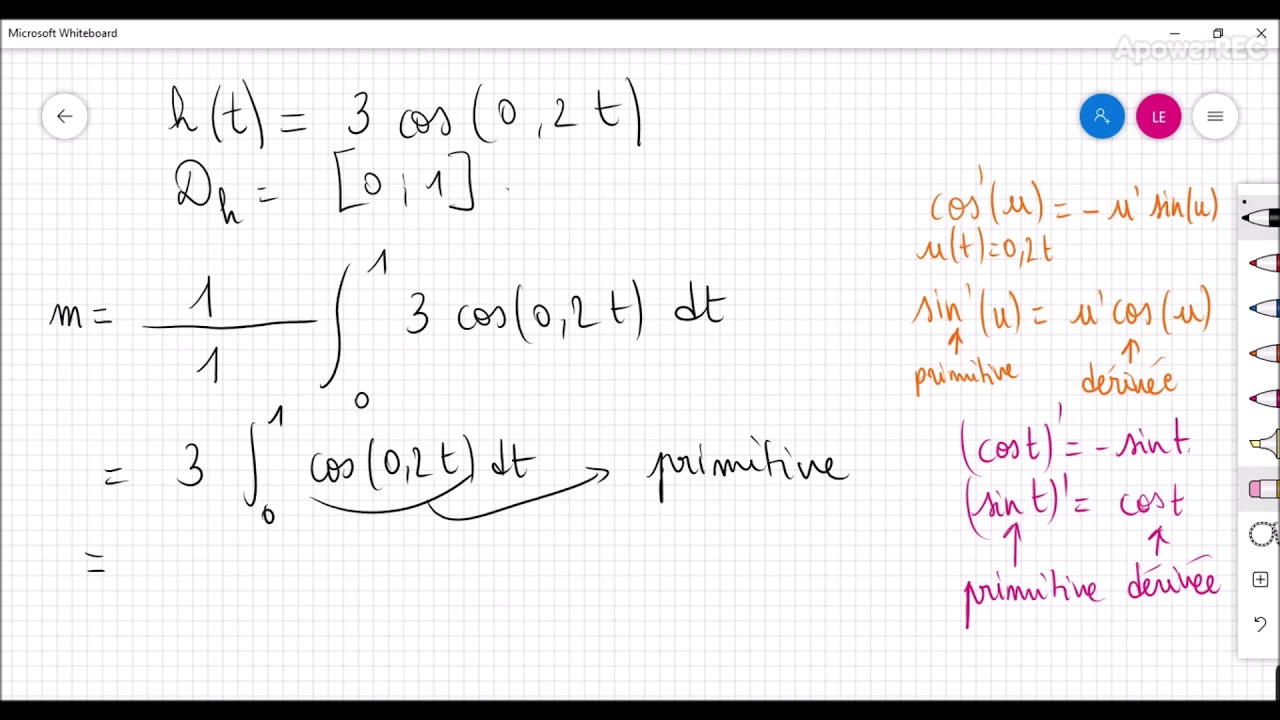 Microsoft Whiteboard
ApowerREC
LE
h(t) = 3 cos(0,2t)
D_h = [0;1]
m = 1/1 ∫_0^1 3 cos(0,2t) dt
= 3 ∫_0^1 cos(0,2t) dt → primitive
=
cos'(u) = -u' sin(u)
u(t) = 0,2t
sin'(u) = u' cos(u)
↑ ↑
primitive dérivée
(cos t)' = - sin t.
(sin t)' = cos t
↑ ↑
primitive dérivée